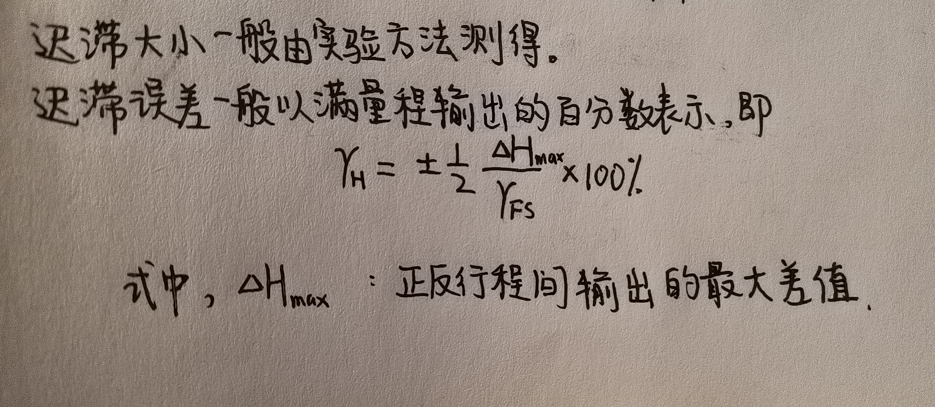 迟滞大小一般由实验方法测得。
迟滞误差一般以满量程输出的百分数表示,即
γH = ±1/2 ΔHmax/YFS × 100%
式中, ΔHmax : 正反行程间输出的最大差值.